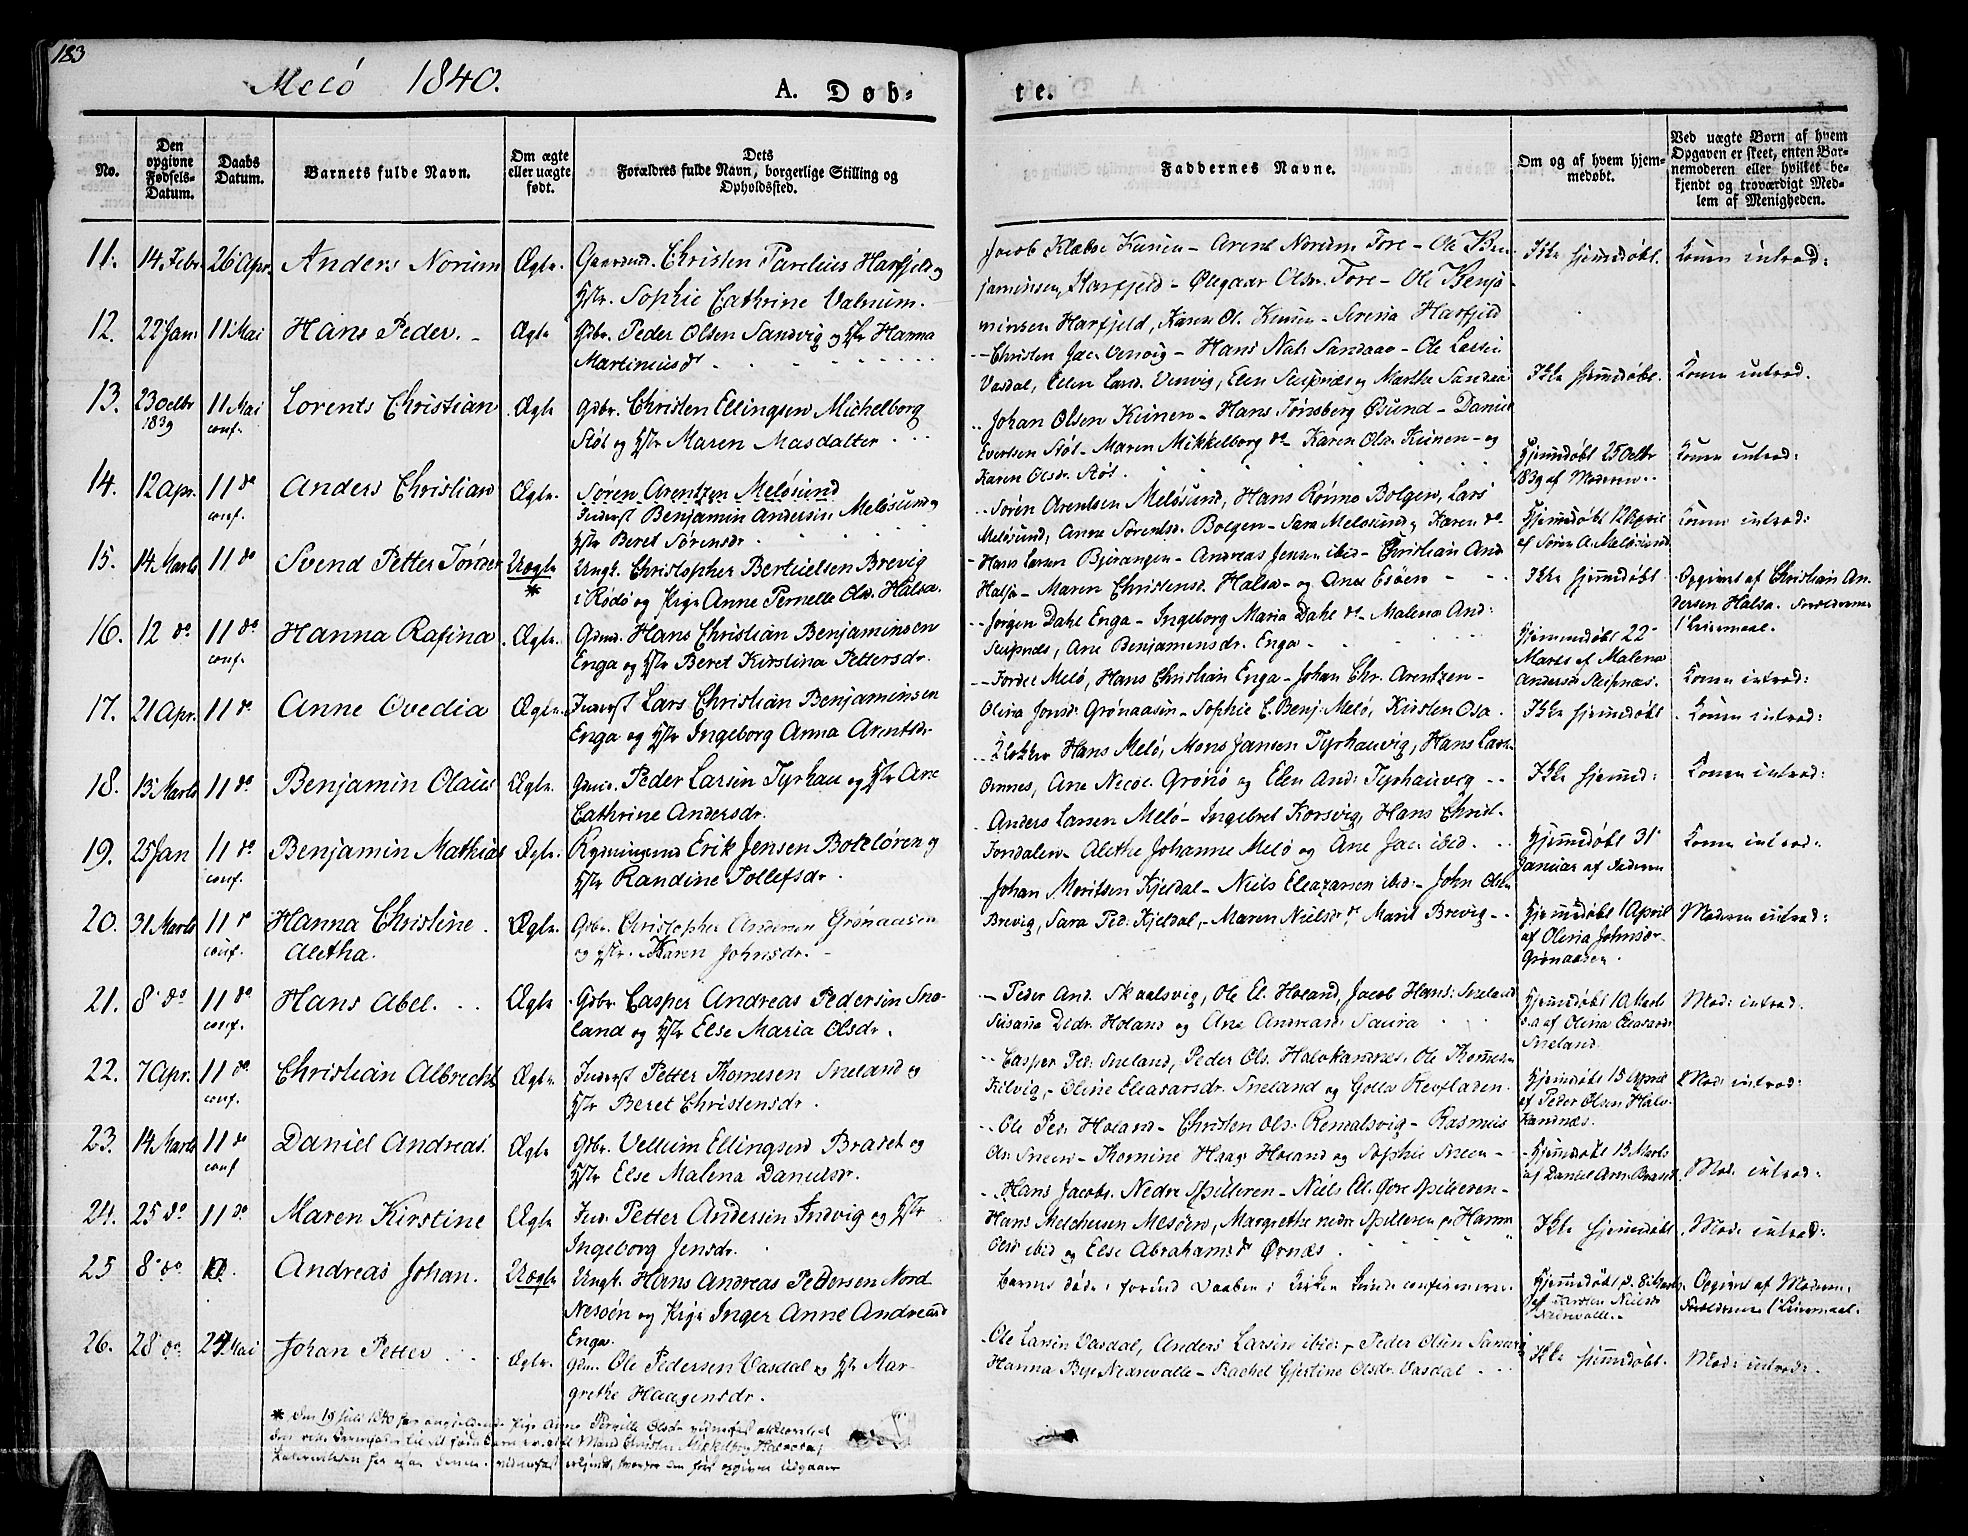 183
Melö 1840.
A. Döb-
te.
No.
Den opgivne Fødsels-Datum.
Daabs Datum.
Barnets fulde Navn.
Om ægte eller uægte født.
Dets Forældres fulde Navn, borgerlige Stilling og Opholdssted.
Faddernes Navne.
Om og af hvem hjem-medøbt.
Ved uægte Børn af hvem Opgaven er skeet, enten Bar-nemoderen eller hvilket be-kjendt og troværdigt Med-lem af Menigheden.
11. 14. Febr. 26 Apr. Anders Norum Ægte. Gaardmd. Christen Parelius Harfjeld og
Hstr. Sophie Cathrine Valnum.
Jacob Klæboe Kunen - Arent Norum Fore - Ole Ben
jaminsen, Harfjeld - Ølegaar Olsr. Fore - Ole Benja-
minsen Harfjeld, Karen Ol. Kunen - Serena Harfjeld
Ikke hjemedøbt. Konen introd:
12. 22 Jan 11 Mai Hans Peder. Ægte Gdbr. Peder Olsen Sandvig og Hstr Hanna
Martinusdr
Christen Jac. Venvig - Hans Nat. Sandaa - Ole Larsen
Vasdal, Ellen Land. Venvig, Elen Seipnæs og Marthe Sandaa
Ikke hjemedøbt. Konen introd.
13. 23 Octbr 1839 11 Mai conf. Lorents Christian Ægte Gdbr. Christen Ellingsen Michelborg
Støt og Hstr Maren Masdatter
Johan Olsen Kunen - Hans Tønsberg Øsund - Daniel
Evertsen Støt - Maren Mikkelborg do - Karen Ols. Kunen - og
Karen Olsdr. Støt.
Hjemedøbt 25 Octbr
1839 af Moderen. Konen introd:
14. 12 Apr. 11 do conf. Anders Christian Ægte. Søren Arentzen Meløsund
Inderst Benjamin Andersen Meløsund og
Hstr Beret Sørensdr
Sören Arentsen Meløsund, Hans Rønno Bolgen, Lars
Meløsund, Anne Sørentsdr. Bolgen - Sara Meløsund og Karen do
Hjemedøbt 12 April
af Søren A. Meløsund Konen introd:
15. 14 Marts 11 do Svend Petter Tørber Uægte * Ungk. Christopher Bertielsen Brevig
i Rödö og Pige Anne Pernelle Ols. Halsa.
Hans Larsen Bjerangen - Andreas Jensen ibid - Christian And
Halsa - Maren Christensd. Halsa - og Ane Esøen
Ikke hjemedøbt Opgivet af Christian An-
dersen Halsa. Forældrene
1ste Leiermaal.
16. 12 do. 11 do. conf. Hanna Rafina Ægte. Gdmd. Hans Christian Benjaminsen
Enga og Hstr Beret Kirstina Pettersdr.
Jørgen Dahl Enga - Ingeborg Maria Dahl do - Malena And:
Seipnæs, Ane Benjamensdr. Enga
Hjemmedøbt 22
Marts af Malena
Andersd. Seipnæs. Konen introd:
17. 21 Apr. 11 do Anne Ovedia Ægte. Inderst Lars Christian Benjaminsen
Enga og Hstr Ingeborg Anna Arntsdr
Tordei Melö, Hans Christian Enga - Johan Chr. Arentzen
Olina Jonsd. Grønaasen - Sophie C. Benj. Melö, Kirsten Osa.
Ikke hjemedøbt Konen introd:
18. 15 Marts 11 do Benjamin Olaus Ægte. Gdmd. Peder Larsen Tyrhau og Hstr Ane
Cathrine Andersdr.
Klokker Hans Melö, Mons Jansen Tyrhauvig, Hans Lars.
Ommes, Ane Necol. Grønö og Elen And: Tyrhauvig
Ikke hjemed: Konen introd:
19. 25 Jan 11 do conf. Benjamin Mathias Ægte. Rydningsmd Erik Jensen Boteløren og
Hstr Randine Tollefsdr.
Anders Larsen Melö - Ingebret Korsvig, Hans Christ.
Fondalen - Alethe Johanne Melö og Ane Jac ibid.
Hjemmedøbt 31
Januar af Faderen Konen introd:
20. 31 Marts 11 do conf. Hanna Christine
Aletha. Ægte. Gdbr. Christopher Andersen Grønaasen
og Hstr. Karen Johnsdr.
Johan Moritsen Kjeldal - Niels Eleazarsen ibid: - John Ols.
Brevig, Sara Ped. Kjeldal, - Maren Nielsdr do Marit Brevig
Hjemedøbt 1 April
af Olina Johnsdr
Grønaasen. Moderen introd:
21. 8 do 11 do conf. Hans Abel. Ægte Gdbr. Casper Andreas Pedersen Sne-
land og Hstr Else Maria Olsdr.
Peder And. Skaalsvig, Ole El. Holand, Jacob Hans: Sneland
Susana Dedr. Holand og Ane Andreasd. Saura
Hjemedøbt 10 Marts
s.a af Olina Eleasarsdr
Sneland. Mod: introd.
22. 7 Apr. 11 do. conf. Christian Albrecht Ægte. Inderst Petter Thomesen Sneland og
Hstr Beret Christensdr.
Casper Ped. Sneland, Peder Ols. Halvkandnes. Ole Thomes.
Kilvig, - Oline Eleasarsdr. Sneland og Golla Refladen
Hjemedøbt 15 April
af Peder Olsen Halv-
kandnæs. Mod: introd:
23. 14 Marts 11 do conf Daniel Andreas. Ægte Gdbr. Vellum Ellingsen Braset og
Hstr Else Malena Danielsdr.
Ole Ped. Holand - Christen Ols. Remalsvig - Rasmus
Ols. Sneen - Thomine Haag. Holand og Sophie Sneen
Hjemedøbt 15 Marts
af Daniel Arn. Braset Mod. introd:
24. 25 do 11 do Maren Kirstine Ægte Ind. Petter Andersen Indvig og Hstr
Ingeborg Jensdr.
Hans Jacobs. Nedre Spilderen - Niels El. Øvre Spilderen
Hans Melchersen Mesøen, Margrethe nedre Spilderen
Olsd ibid og Else Abrahamsdr Ørnæs.
Ikke hjemedøbt Mod: introd:
25 8 do Andreas Johan. Uægte Ungk. Hans Andreas Pedersen Nord
Nesøen og Pige Inger Anne Andreasd
Enga.
Barnet døde, forind Daaben i Kirken kunde confirmeres.
Hjemedøbt d. 8 Marts
Opgivet af Moderen.
Forældrenes 1ste Leiermaal.
26. 28 do. 24 Mai Johan Petter Ægte. Gdm. Ole Pedersen Vasdal og Hstr Mar-
grethe Haagensdr.
Ole Larsen Vasdal, Anders Larsen ibid: - Peder Olsen Sandvig
Hanna Bye Nedrevalle - Rachel Gjertine Olsdr. Vasdal
Ikke hjemedøbt. Mod: introd:
* Den 19 Juli 1840 har angjeldende Pige Anne Pernille Olsdr